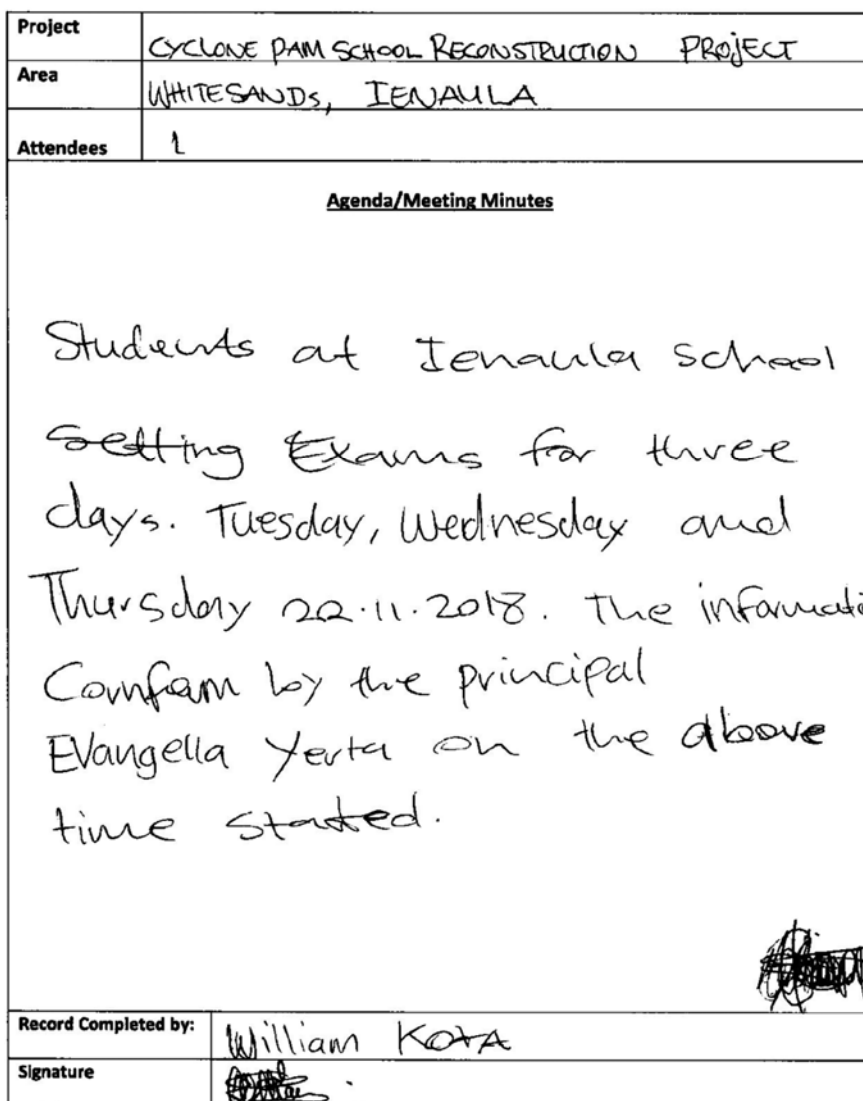 Project CYCLONE PAM SCHOOL RECONSTRUCTION PROJECT
Area WHITESANDS, IENAULA
Attendees 1
Agenda/Meeting Minutes
Students at Ienaula school
Setting Exams for three
days. Tuesday, Wednesday and
Thursday 22.11.2018. The informati
Cornfam by the principal
EVangella Yerta on the above
time started.
Record Completed by: William KOTA
Signature